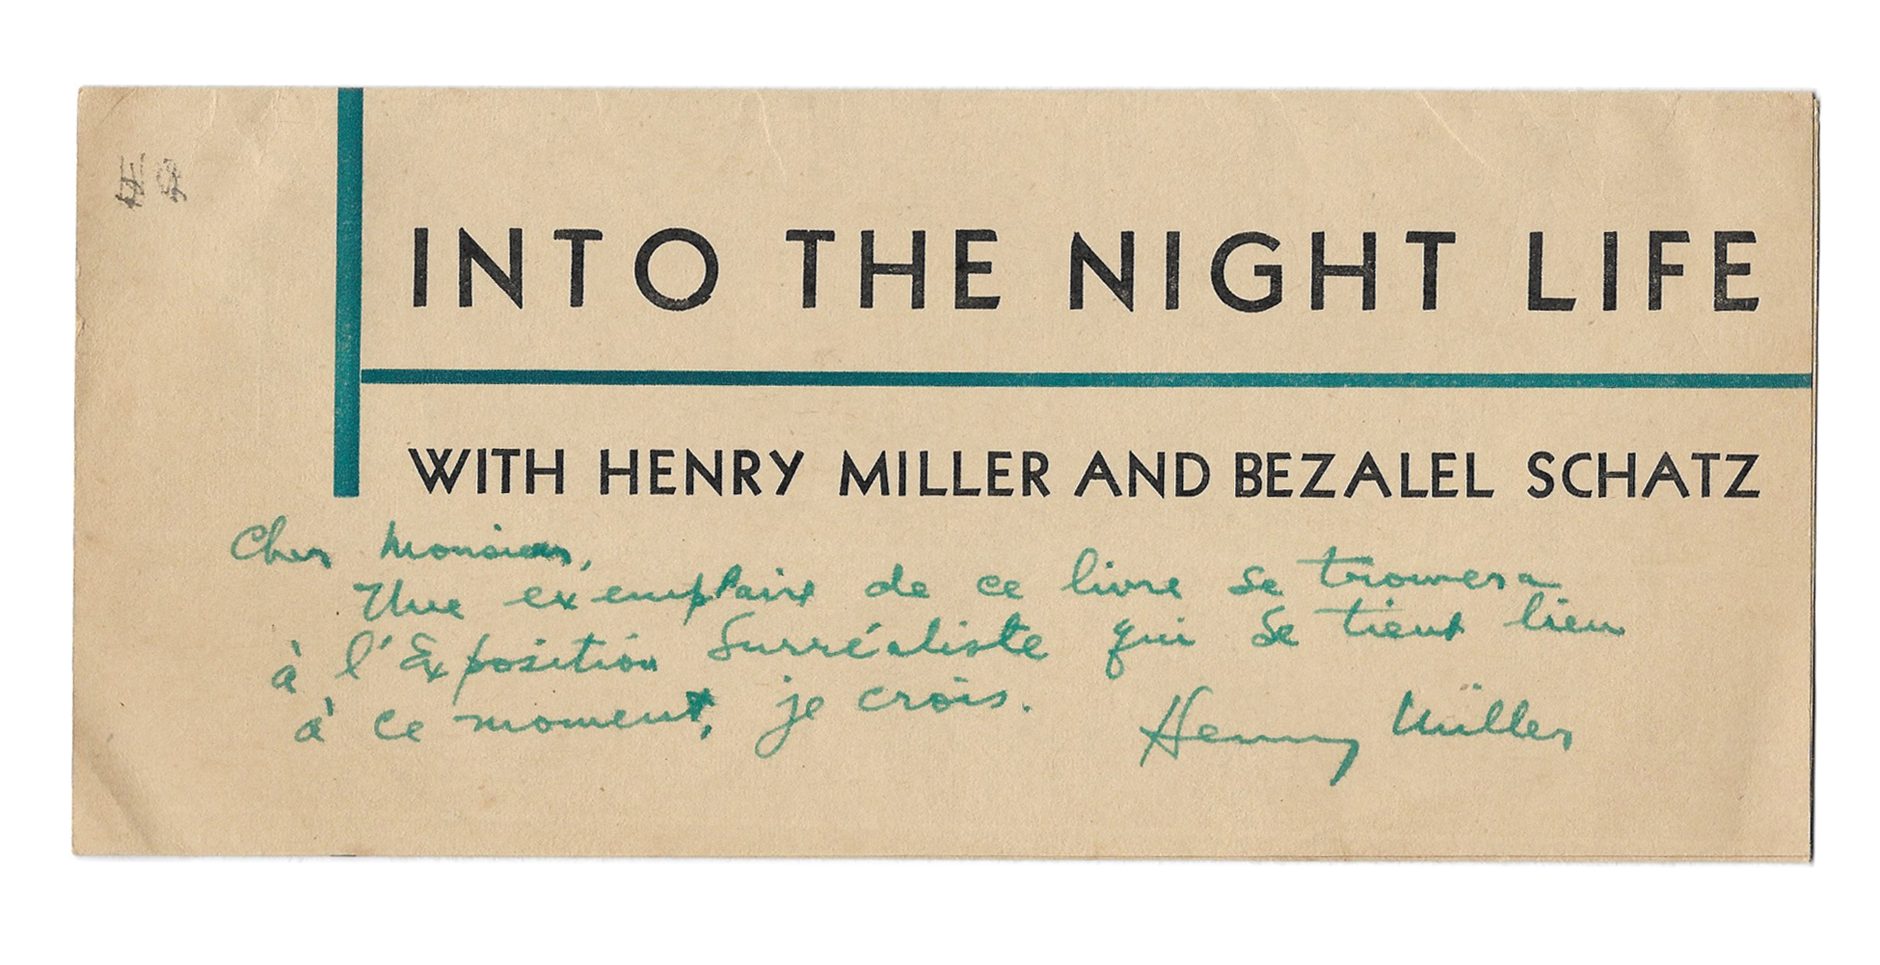 INTO THE NIGHT LIFE
WITH HENRY MILLER AND BEZALEL SCHATZ
Cher Monsieur,
Une exemplaire de ce livre se trouvera
à l'Exposition Surréaliste qui se tient lieu
à ce moment, je crois.
Henry Miller